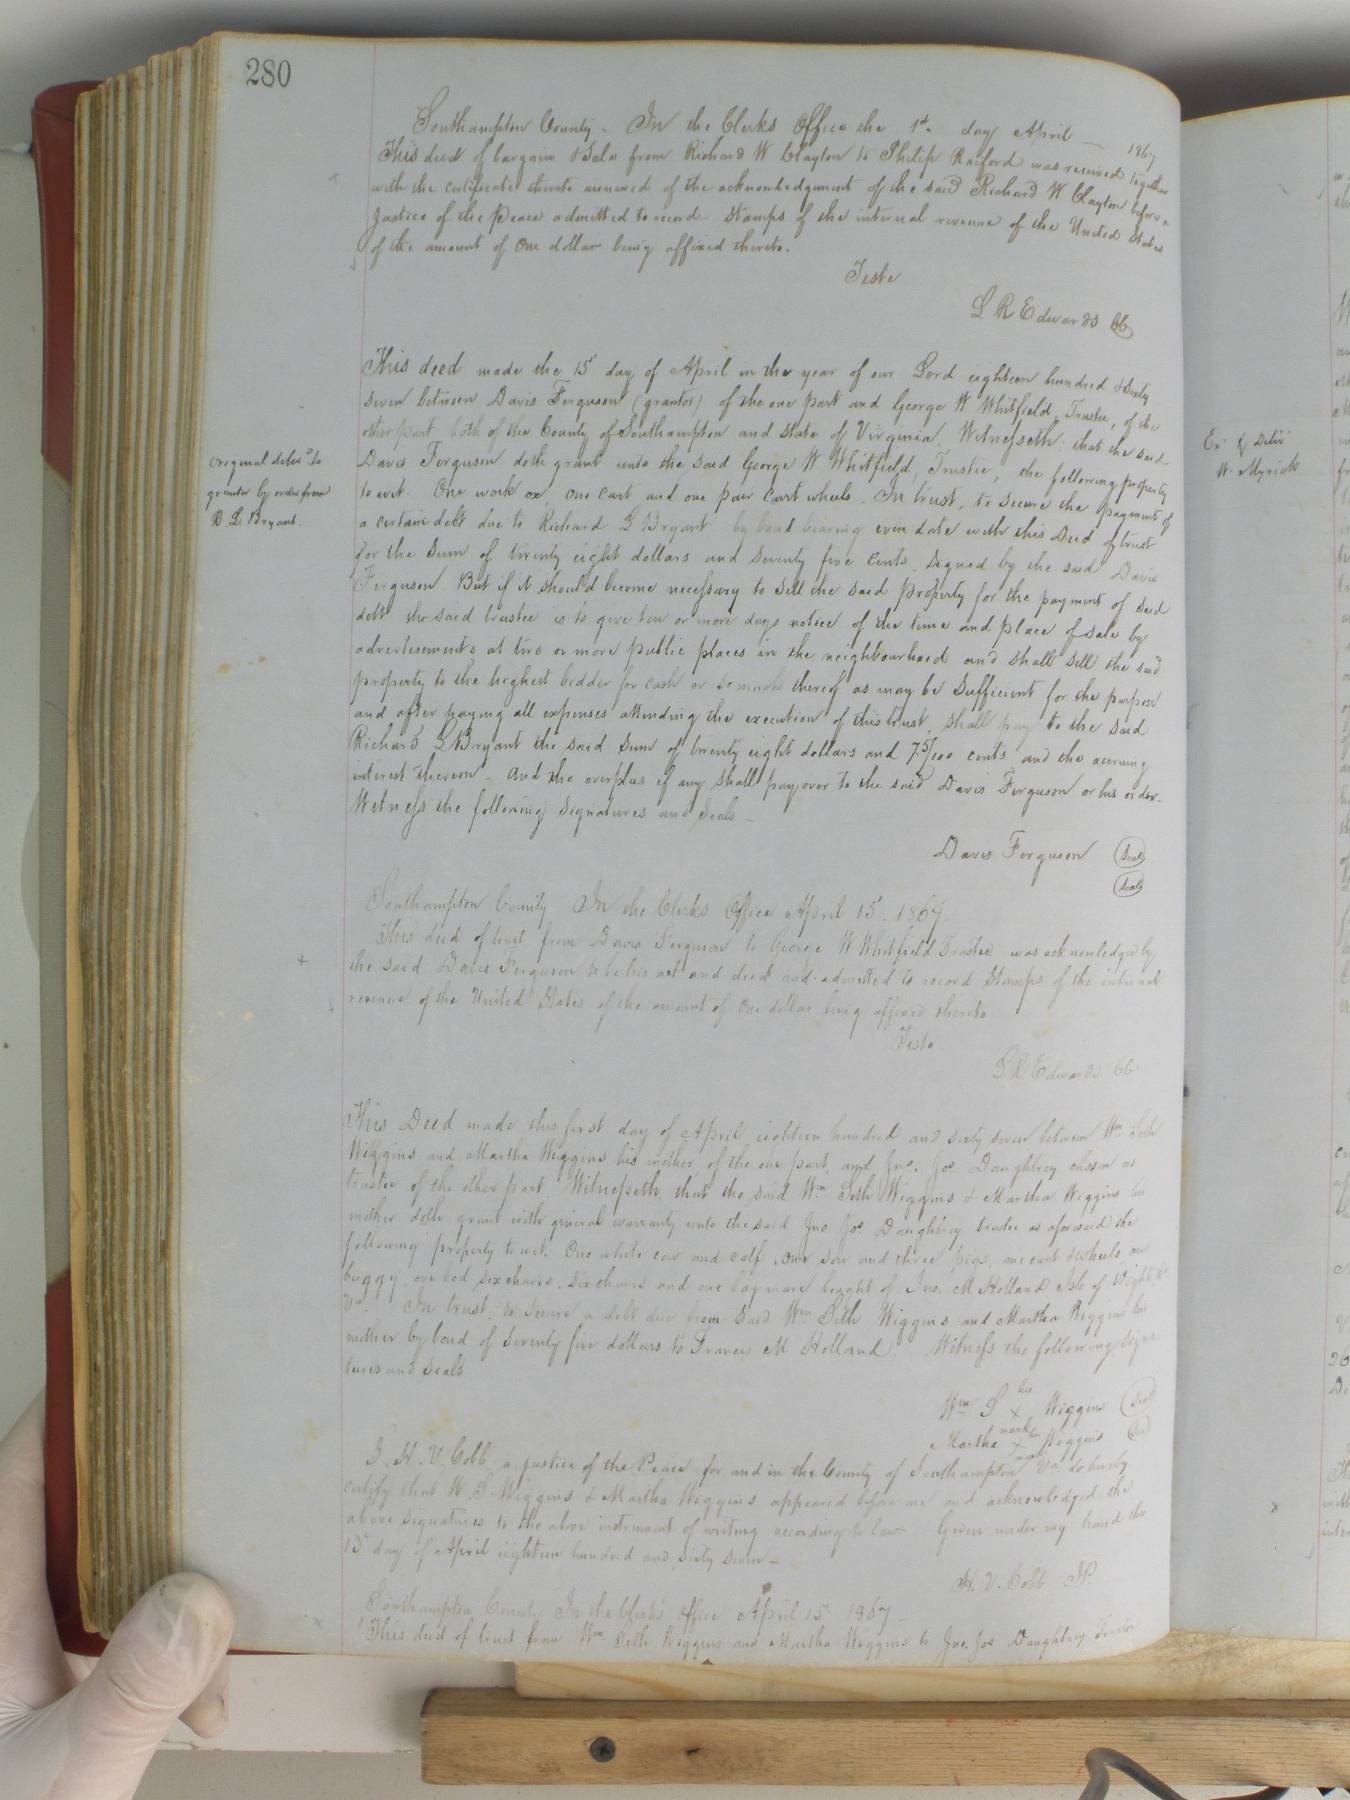 280
Southampton County. In the Clerks Office the 1st day April 1867
This deed of bargain & Sale from Richard W Clayton to Philip Raiford was received together
with the certificate thereto annexed of the acknowledgment of the said Richard W Clayton before a
Justice of the Peace admitted to record Stamps of the internal revenue of the United States
of the amount of One dollar being affixed thereto.
Teste
L R Edwards CC
This deed made the 15th day of April in the year of our Lord eighteen hundred & Sixty
Seven between Davis Ferguson (grantor) of the one part and George W Whitfield, Trustee, of the
other part both of the County of Southampton and State of Virginia. Witnesseth that the said
Original deliv'd to
grantor by order from
R L Bryant.
Davis Ferguson doth grant unto the said George W Whitfield, Trustee, the following property
to wit. One work ox, one cart and one pair Cart wheels. In trust, to secure the payment of
a certain debt due to Richard L Bryant by bond bearing even date with this Deed of trust
for the Sum of twenty eight dollars and Seventy five Cents, Signed by the said Davis
Ferguson. But if it should become necessary to Sell the said property for the payment of said
debt the said trustee is to give ten or more days notice of the time and place of sale by
advertisements at two or more public places in the neighbourhood and shall sell the said
property to the highest bidder for cash or so much thereof as may be Sufficient for the purpose
and after paying all expenses attending the execution of this trust, shall pay to the said
Richard L Bryant the said Sum of twenty eight dollars and 75/100 cents and the accruing
interest thereon - And the overplus if any shall pay over to the said Davis Ferguson or his order.
Witness the following Signatures and Seals -
Davis Ferguson (Seal)
(Seal)
Southampton County In the Clerks Office April 15, 1867
This deed of trust from Davis Ferguson to George W Whitfield Trustee was acknowledged by
the said Davis Ferguson to be his act and deed and admitted to record Stamps of the internal
revenue of the United States of the amount of One dollar being affixed thereto
Teste
L R Edwards CC
This Deed made this first day of April eighteen hundred and sixty seven between Wm Seth
Wiggins and Martha Wiggins his mother, of the one part, and Jno. Jos Daughtrey chosen as
trustee of the other part. Witnesseth, that the said Wm Seth Wiggins & Martha Wiggins his
mother doth grant with general warranty unto the said Jno Jos. Daughtrey trustee as aforesaid the
following property to wit. One white cow and calf, one sow and three pigs, one cart & wheels, one
buggy, one bed, six chairs, six chairs and one bay mare bought of Jno. M Holland Isle of Wight Co
Va. In trust, to secure a debt due from said Wm Seth Wiggins and Martha Wiggins his
mother by bond of Seventy five dollars to Francis M Holland Witness the following signa
tures and Seals
Wm S his X mark Wiggins (Seal)
Martha her X mark Wiggins (Seal)
I, H. V. Cobb, a justice of the Peace for and in the County of Southampton Va do hereby
certify that W. S. Wiggins & Martha Wiggins appeared before me and acknowledged the
above Signatures to the above instrument of writing according to law Given under my hand this
15th day of April eighteen hundred and sixty seven -
H. V. Cobb JP.
Southampton County In the Clerk's Office April 15 1867
This deed of trust from Wm Seth Wiggins and Martha Wiggins to Jno. Jos Daughtrey Trustee
Ex & Deliv
W. Myrick